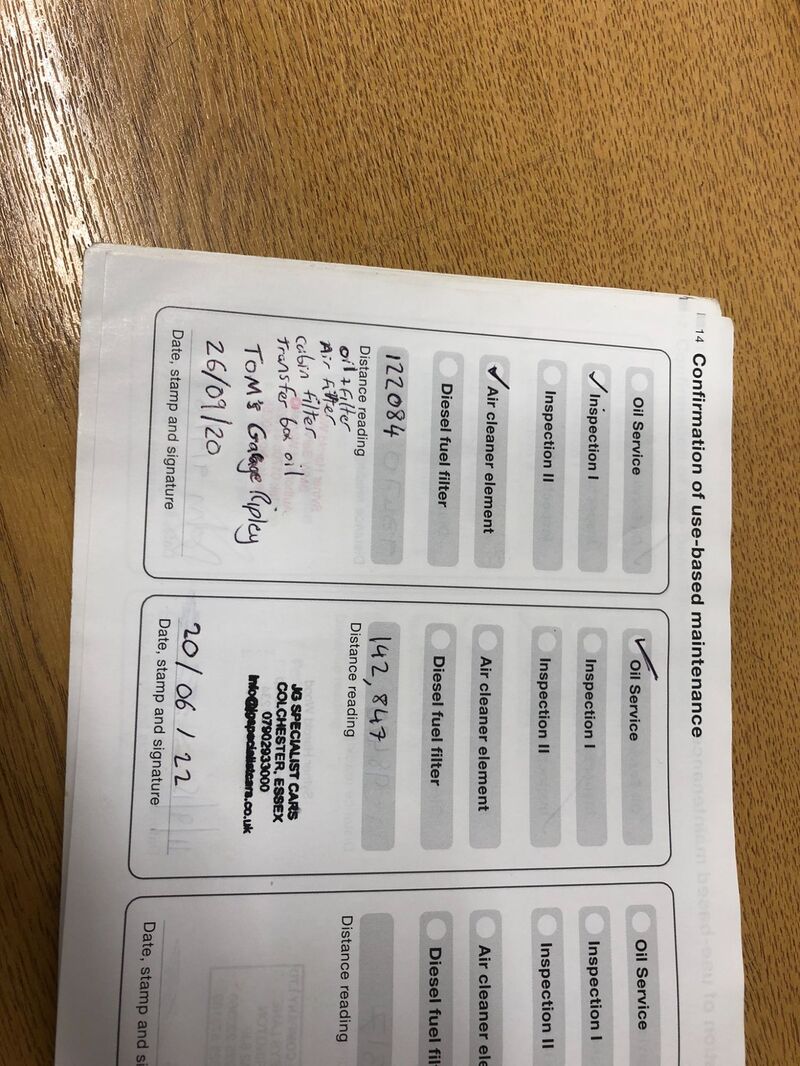 14 Confirmation of use-based maintenance
Oil Service
Inspection I
Inspection II
Air cleaner element
Diesel fuel filter
122084
Distance reading
oil + filter
Air filter
cabin filter
transfer box oil
TOM's Garage Ripley
26/09/20
Date, stamp and signature
Oil Service
Inspection I
Inspection II
Air cleaner element
Diesel fuel filter
142,847
Distance reading
JG SPECIALIST CARS
COLCHESTER, ESSEX
07902933000
info@jgspecialistcars.co.uk
20/06/22
Date, stamp and signature
Oil Service
Inspection I
Inspection II
Air cleaner ele
Diesel fuel filt
Distance reading
Date, stamp and si